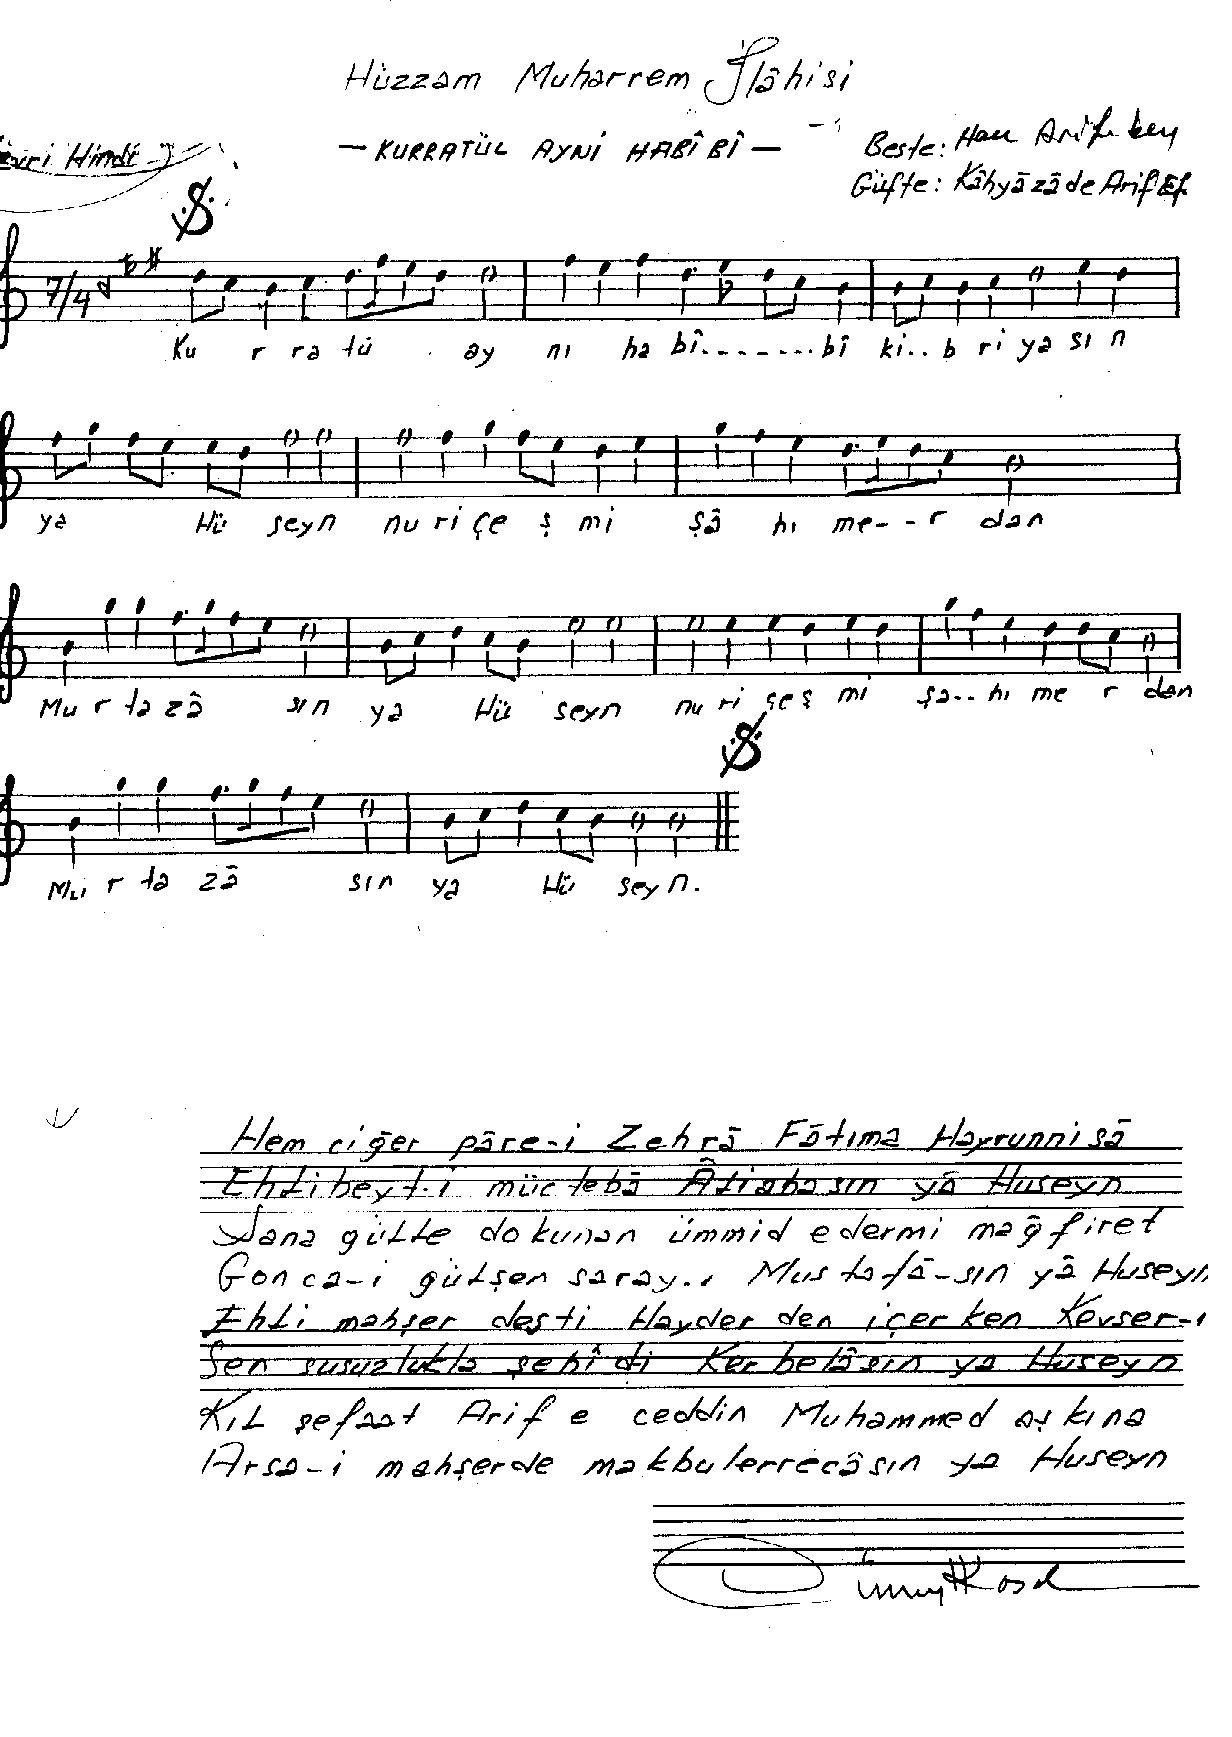 Hüzzam Muharrem İlâhisi
— KURRATÜL AYNİ HABÎBÎ —
Hindi
Beste: Hacı Arif bey
Güfte: Kâhyâzâde Arif Ef.
7/4
Ku r ra tü . ay nı ha bî.........bî ki.. b ri ya sı n
ya Hü seyn nu ri çe ş mi şâ hı me--r dan
Mu r ta zâ sın ya Hü seyn nu ri çeş mi şa.. hı me r dan
Mu r ta zâ sın ya Hü seyn.
Hem ciğer pâre-i Zehrâ Fâtıma Hayrunnisâ
Ehli beyt-i müctebâ Âliabasın yâ Huseyn
Sana gülle dokunan ümmid edermi mağfiret
Gonca-i gülşen saray-ı Mustafâ-sın yâ Huseyn
Ehli mahşer desti Hayder den içerken Kevser-i
Sen susuzlukla şehîdi Kerbelâsın ya Huseyn
Kıl şefaat Arif e ceddin Muhammed aşkına
Arsa-i mahşerde makbulerrecâsın ya Huseyn